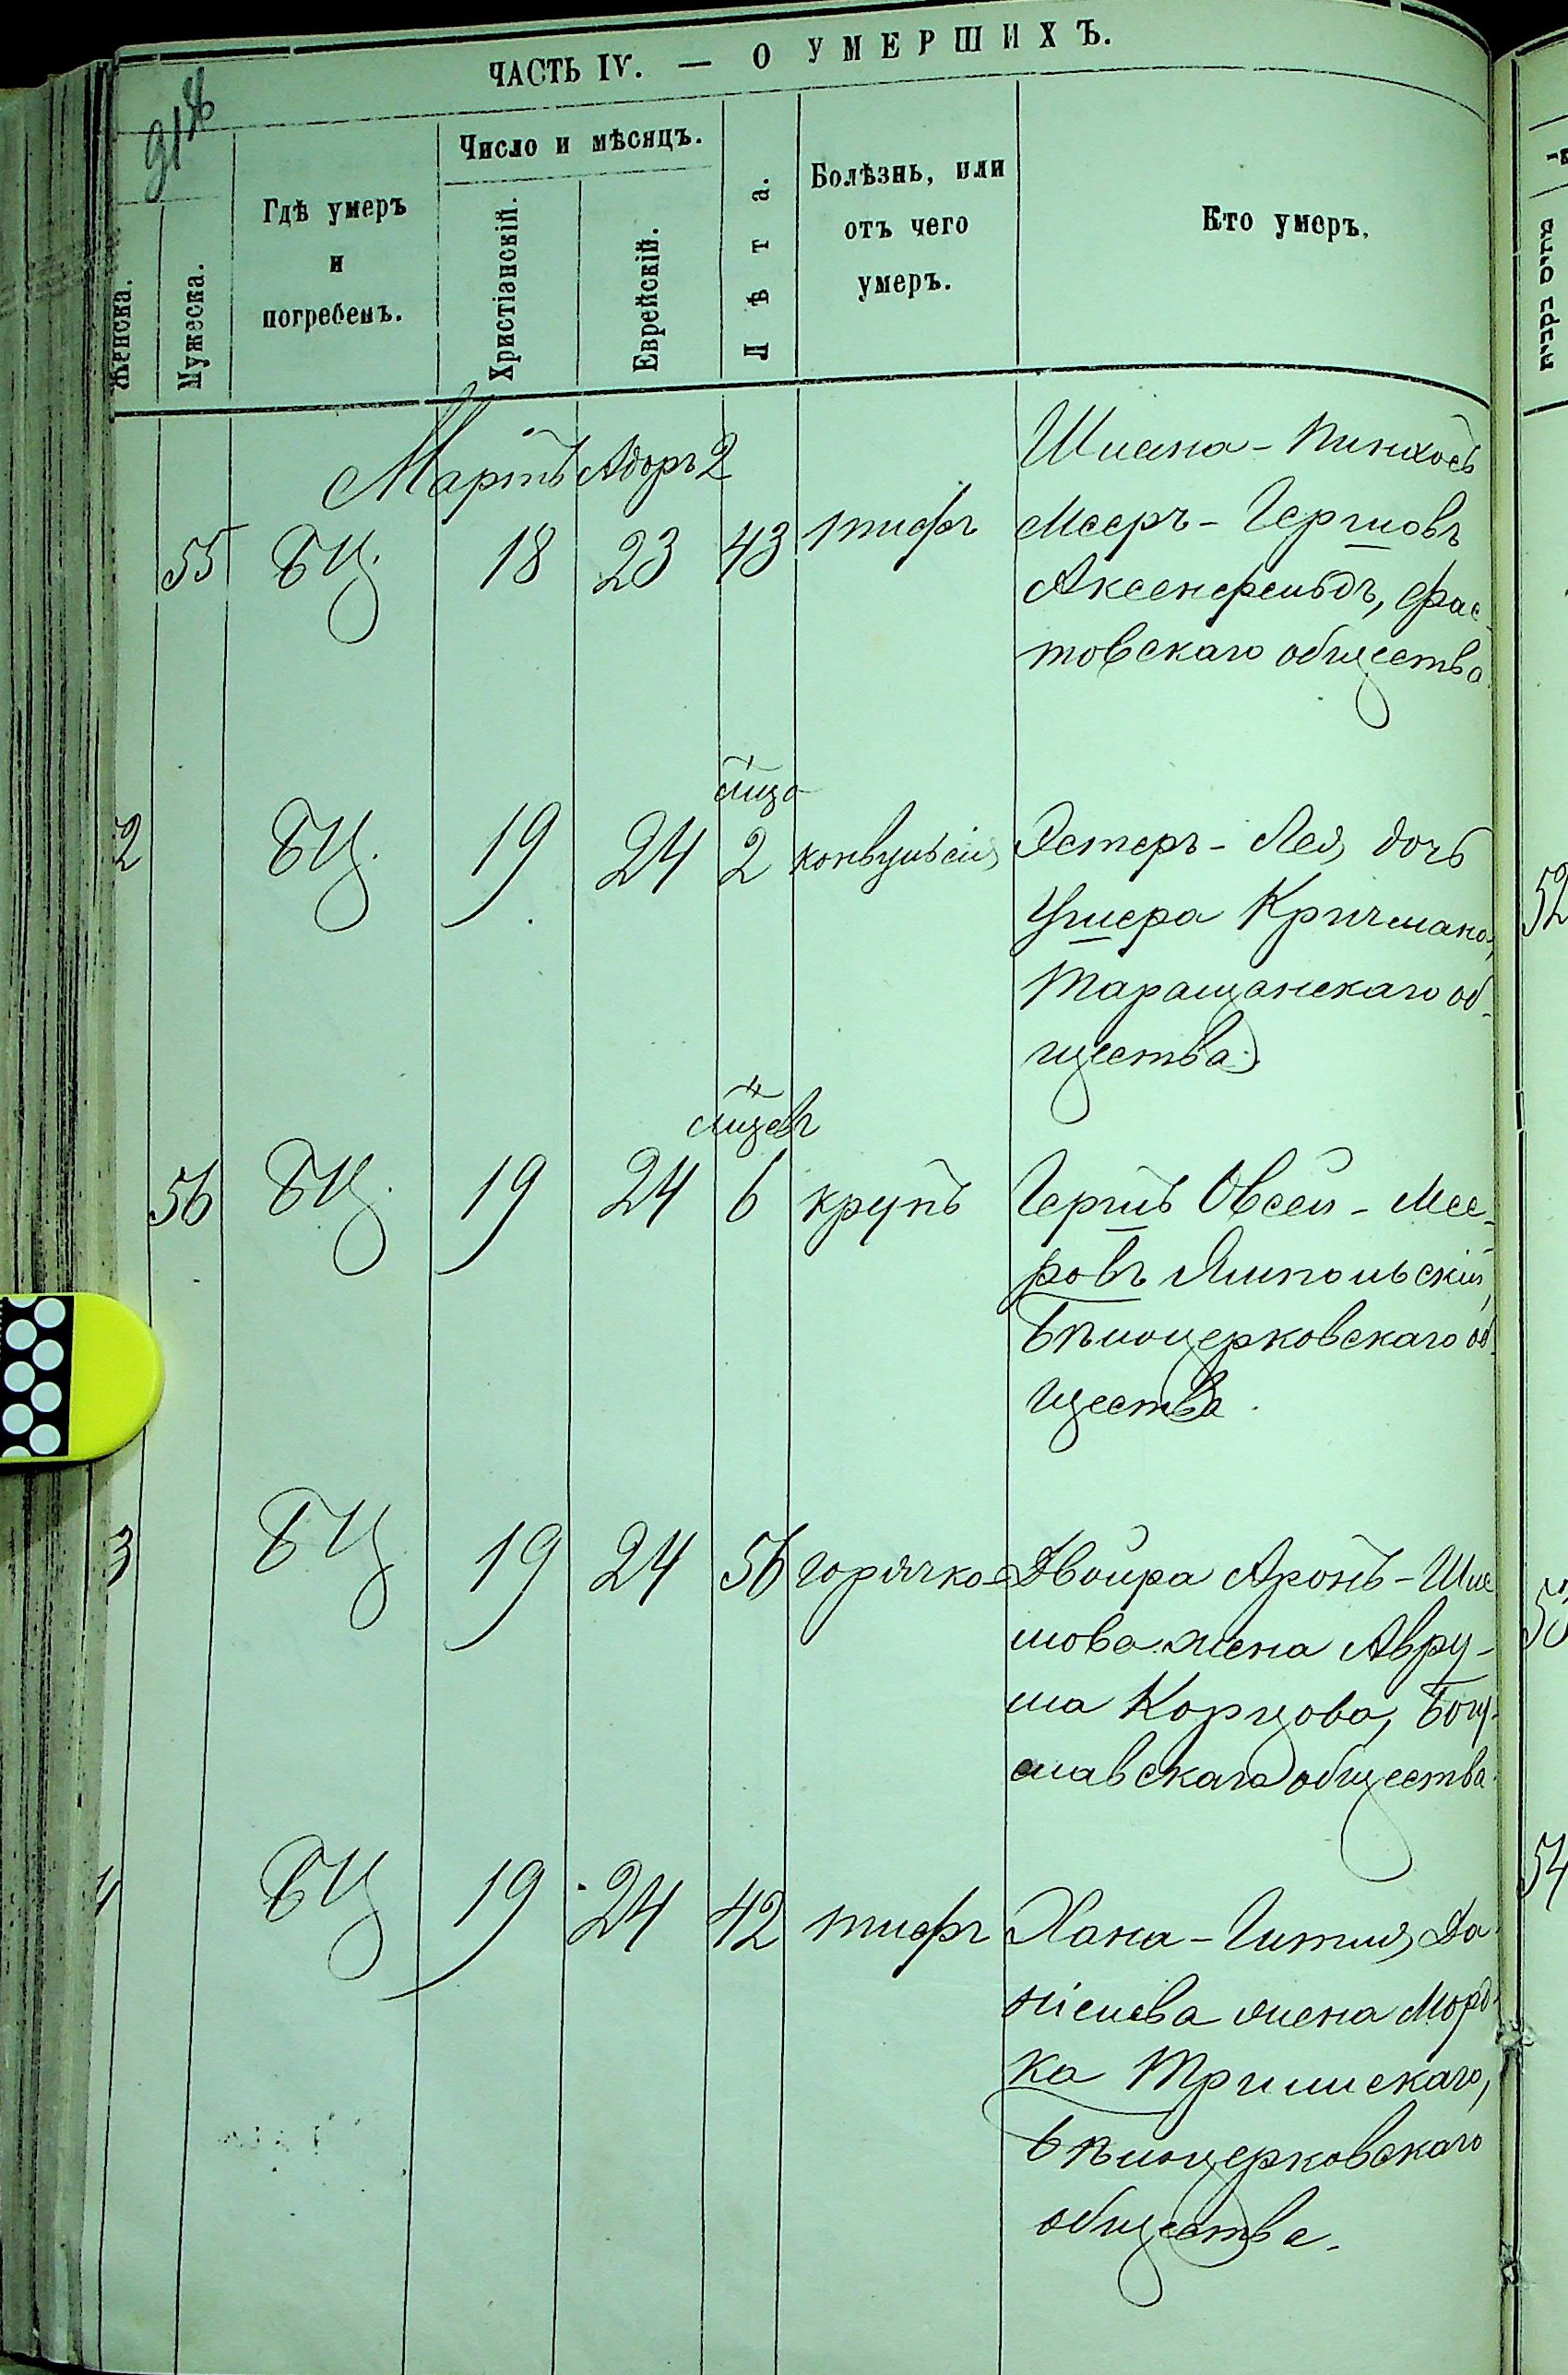 ЧАСТЬ IV. — О УМЕРШИХЪ.
Женска.
Мужеска.
Гдѣ умеръ
и
погребенъ.
Число и мѣсяцъ.
Христіанскій.
Еврейскій.
Лѣта.
Болѣзнь, или
отъ чего
умеръ.
Кто умеръ.
Мартъ Адаръ 2
55 БЦ. 18 23 43 тифъ
Пинхосъ
Мееръ-Гершовъ
Аксенфельдъ, Фас-
товскаго общества
2 БЦ. 19 24 м-ца 2 конвульсія
Эстеръ-Лея, дочь
Ушера Кричмана,
Таращанскаго об-
щества.
56 БЦ. 19 24 м-цевъ 6 крупъ
Гершъ Овсей-Мее-
ровъ Ямпольскій,
Бѣлоцерковскаго об-
щества.
3 БЦ 19 24 56 горячка
Двойра Аронъ-Шмe
лова жена Авру-
ма Корцова, Богу-
славскаго общества
4 БЦ 19 24 42 тифъ
Хана-Гитля Да-
ніелева жена Морд-
ка Трилискаго,
Бѣлоцерковскаго
общества.
52
53
54